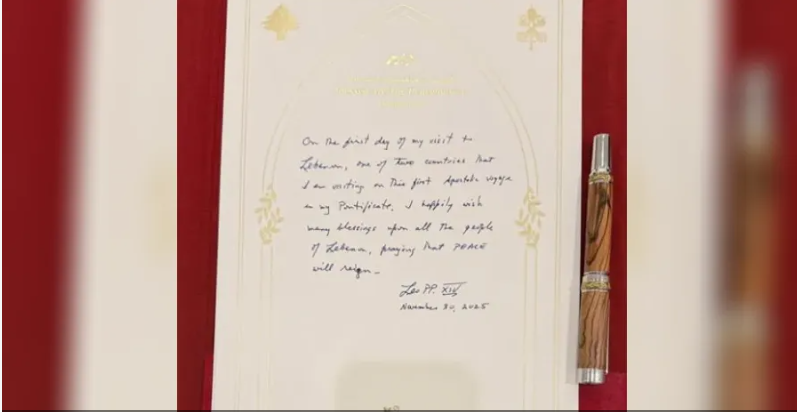 On the first day of my visit to
Lebanon, one of two countries that
I am visiting on this first Apostolic Voyage
in my Pontificate, I happily wish
many blessings upon all the people
of Lebanon, praying that PEACE
will reign.
Leo PP. XIV
November 30, 2025